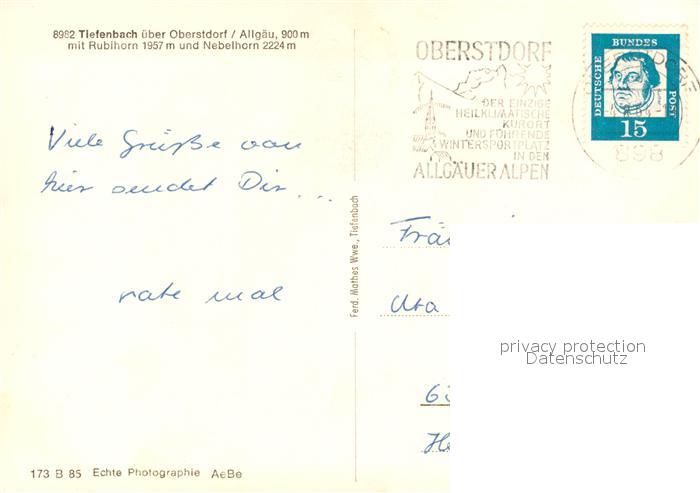 8982 Tiefenbach über Oberstdorf / Allgäu, 900 m
mit Rubihorn 1957 m und Nebelhorn 2224 m
Viele Grüße von
hier sendet Dir...
rate mal
173 B 85 Echte Photographie AeBe
Ferd. Mathes Wwe., Tiefenbach
OBERSTDORF
DER EINZIGE
HEILKLIMATISCHE
KURORT
UND FÜHRENDE
WINTERSPORTPLATZ
IN DEN
ALLGÄUER ALPEN
DEUTSCHE
BUNDES
POST
15
898
Frä
Uta
6
He
privacy protection
Datenschutz